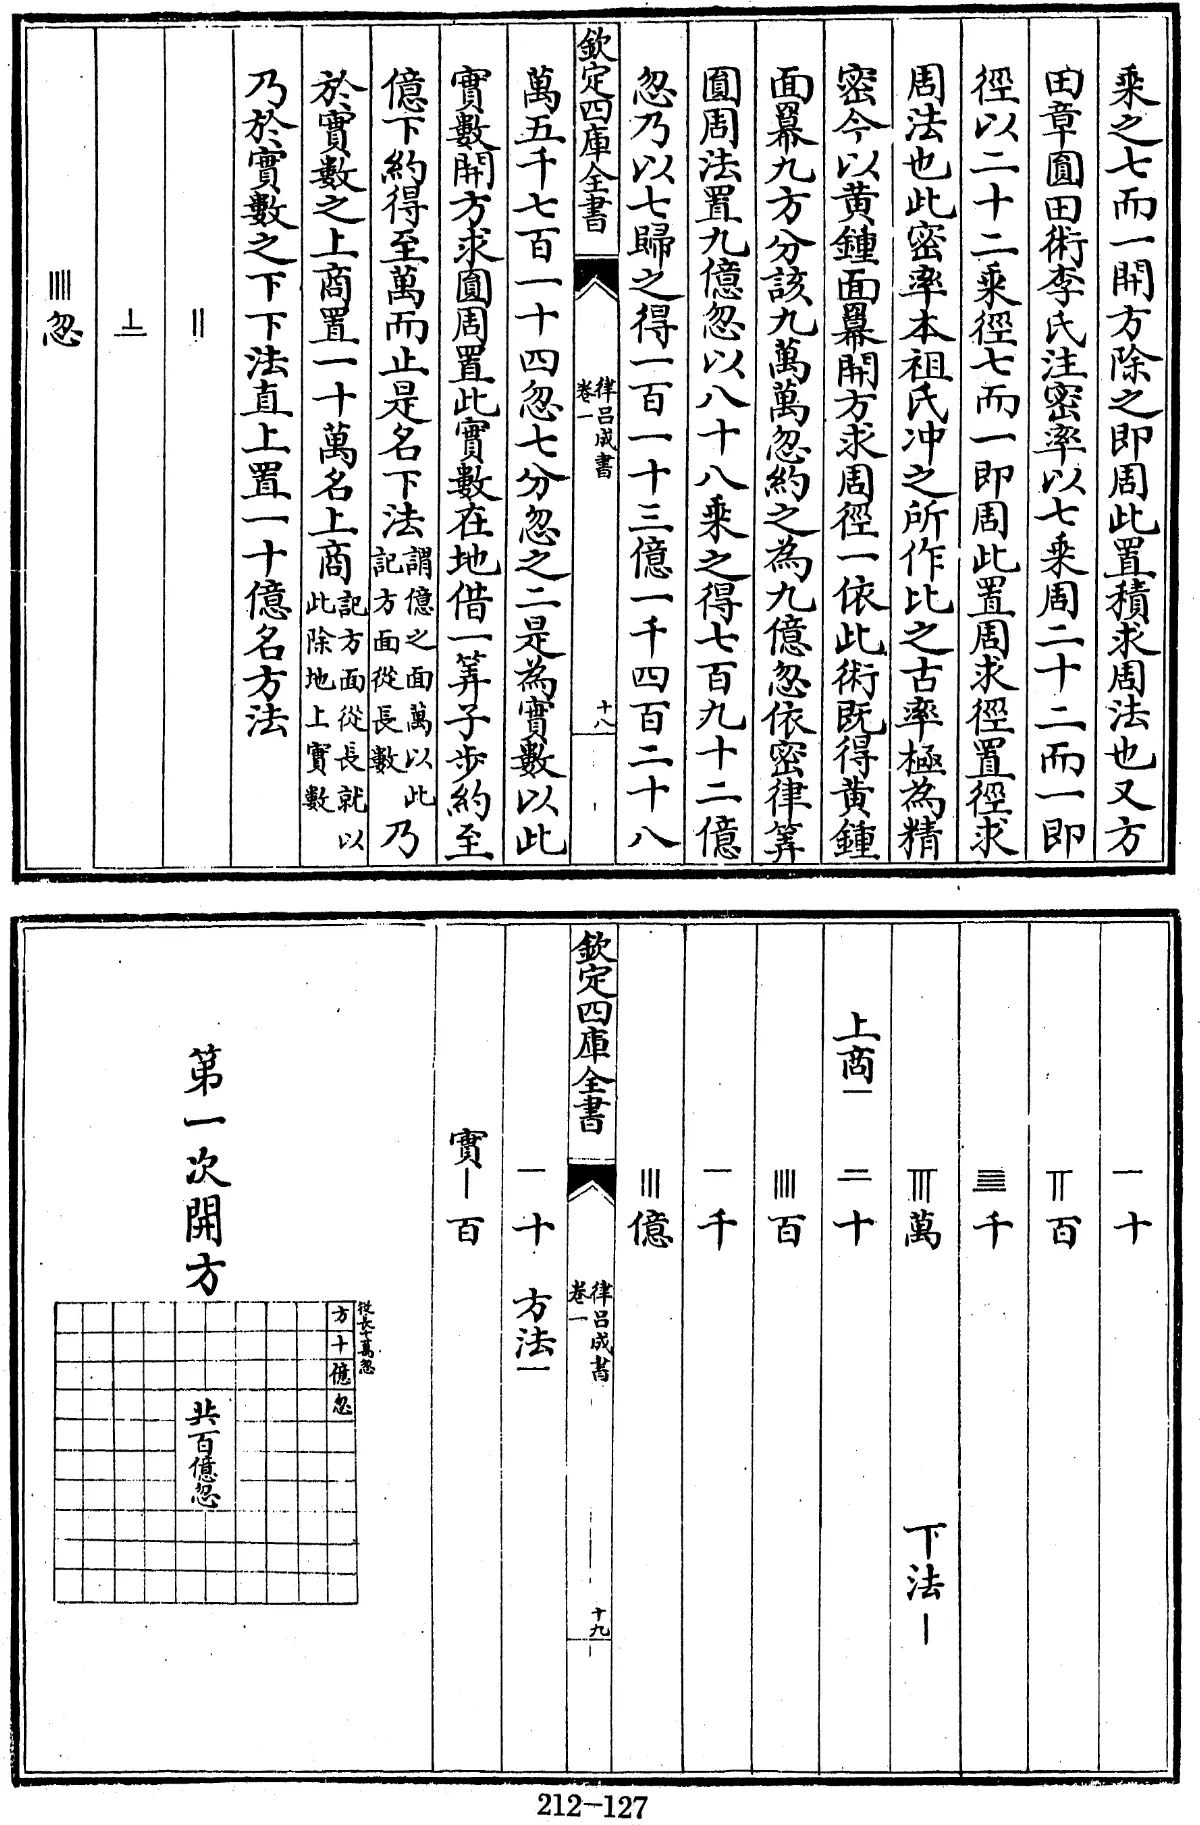 乘之七而一開方除之即周此置積求周法也又方
田章圓田術李氏注密率以七乘周二十二而一即
徑以二十二乘徑七而一即周此置周求徑置徑求
周法也此密率本祖氏冲之所作比之古率極為精
密今以黄鍾面冪開方求周徑一依此術既得黄鍾
面冪九方分該九萬萬忽約之為九億忽依密律筭
圓周法置九億忽以八十八乘之得七百九十二億
忽乃以七歸之得一百一十三億一千四百二十八
欽定四庫全書
律吕成書
卷一
十八
萬五千七百一十四忽七分忽之二是為實數以此
實數開方求圓周置此實數在地借一筭子步約至
億下約得至萬而止是名下法謂億之面萬以此記方面從長數乃
於實數之上商置一十萬名上商記方面從長就以此除地上實數
乃於實數之下下法直上置一十億名方法
〢
〦
𝍣忽
一十
〧百
𝍬千
〨萬 下法〡
上商一 二十
𝍣百
一千
〣億
欽定四庫全書
律吕成書
卷一
十九
一十 方法一
實〡百
第一次開方
從長十萬忽
方十億忽
共百億忽
212-127